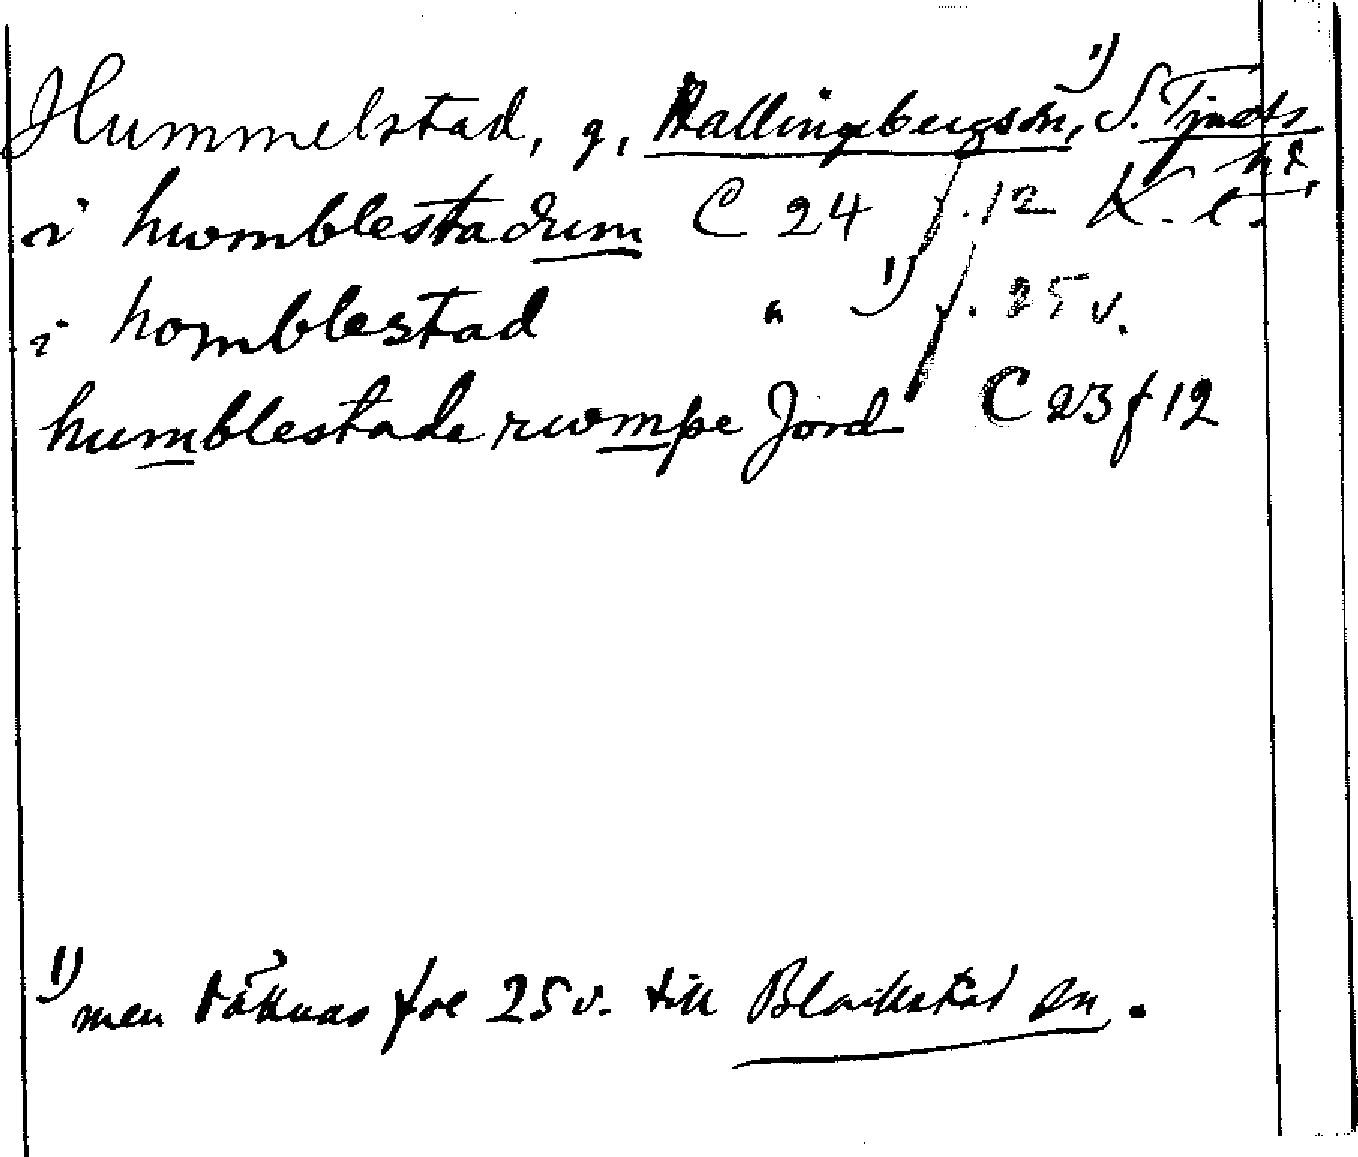 Hummelstad, g, Hallingebergs sn,¹⁾ S. Tjusts hd
i humblestadum C 24 f. 12 K. l.
i homblestad " ¹⁾ f. 25 v.
humblestada rumpe Jord C 23 f 12
¹⁾ men räknas fol 25 v. till Blackstad sn.